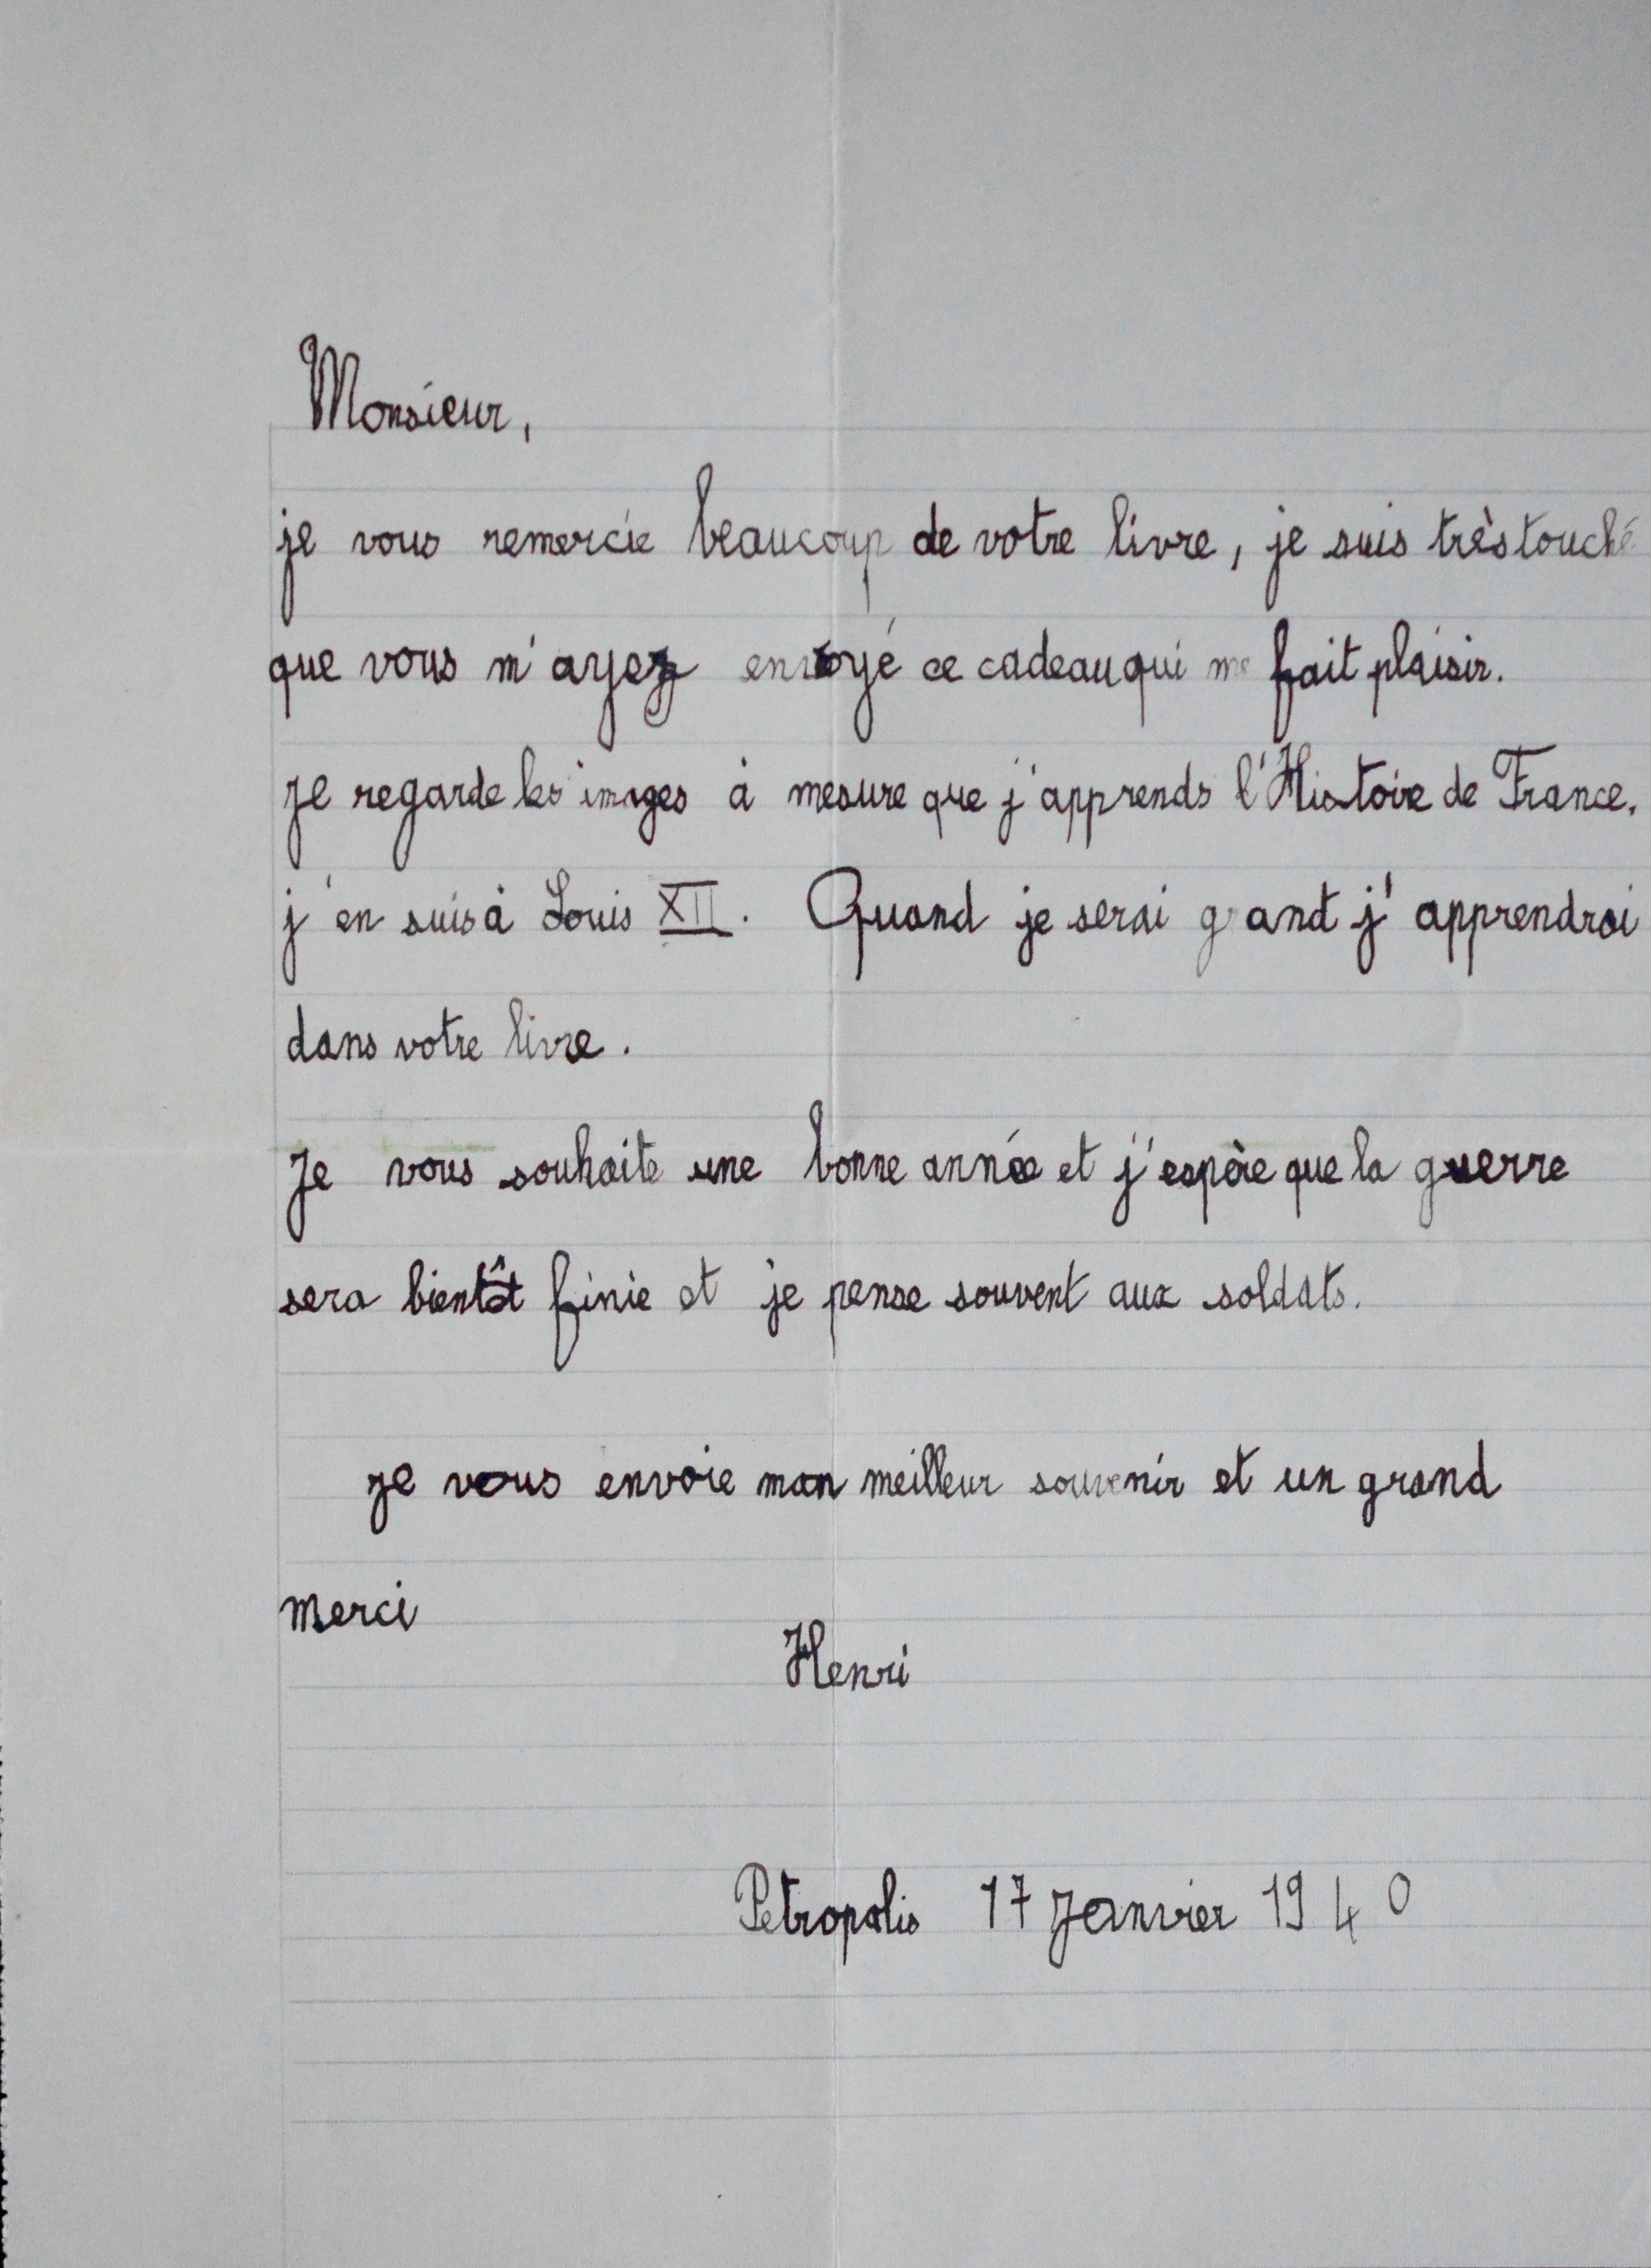 Monsieur,
je vous remercie beaucoup de votre livre, je suis très touché
que vous m'ayez envoyé ce cadeau qui me fait plaisir.
Je regarde les images à mesure que j'apprends l'Histoire de France.
j'en suis à Louis XII. Quand je serai grand j'apprendrai
dans votre livre.
Je vous souhaite une bonne année et j'espère que la guerre
sera bientôt finie et je pense souvent aux soldats.
je vous envoie mon meilleur souvenir et un grand
merci
Henri
Petropolis 17 Janvier 1940